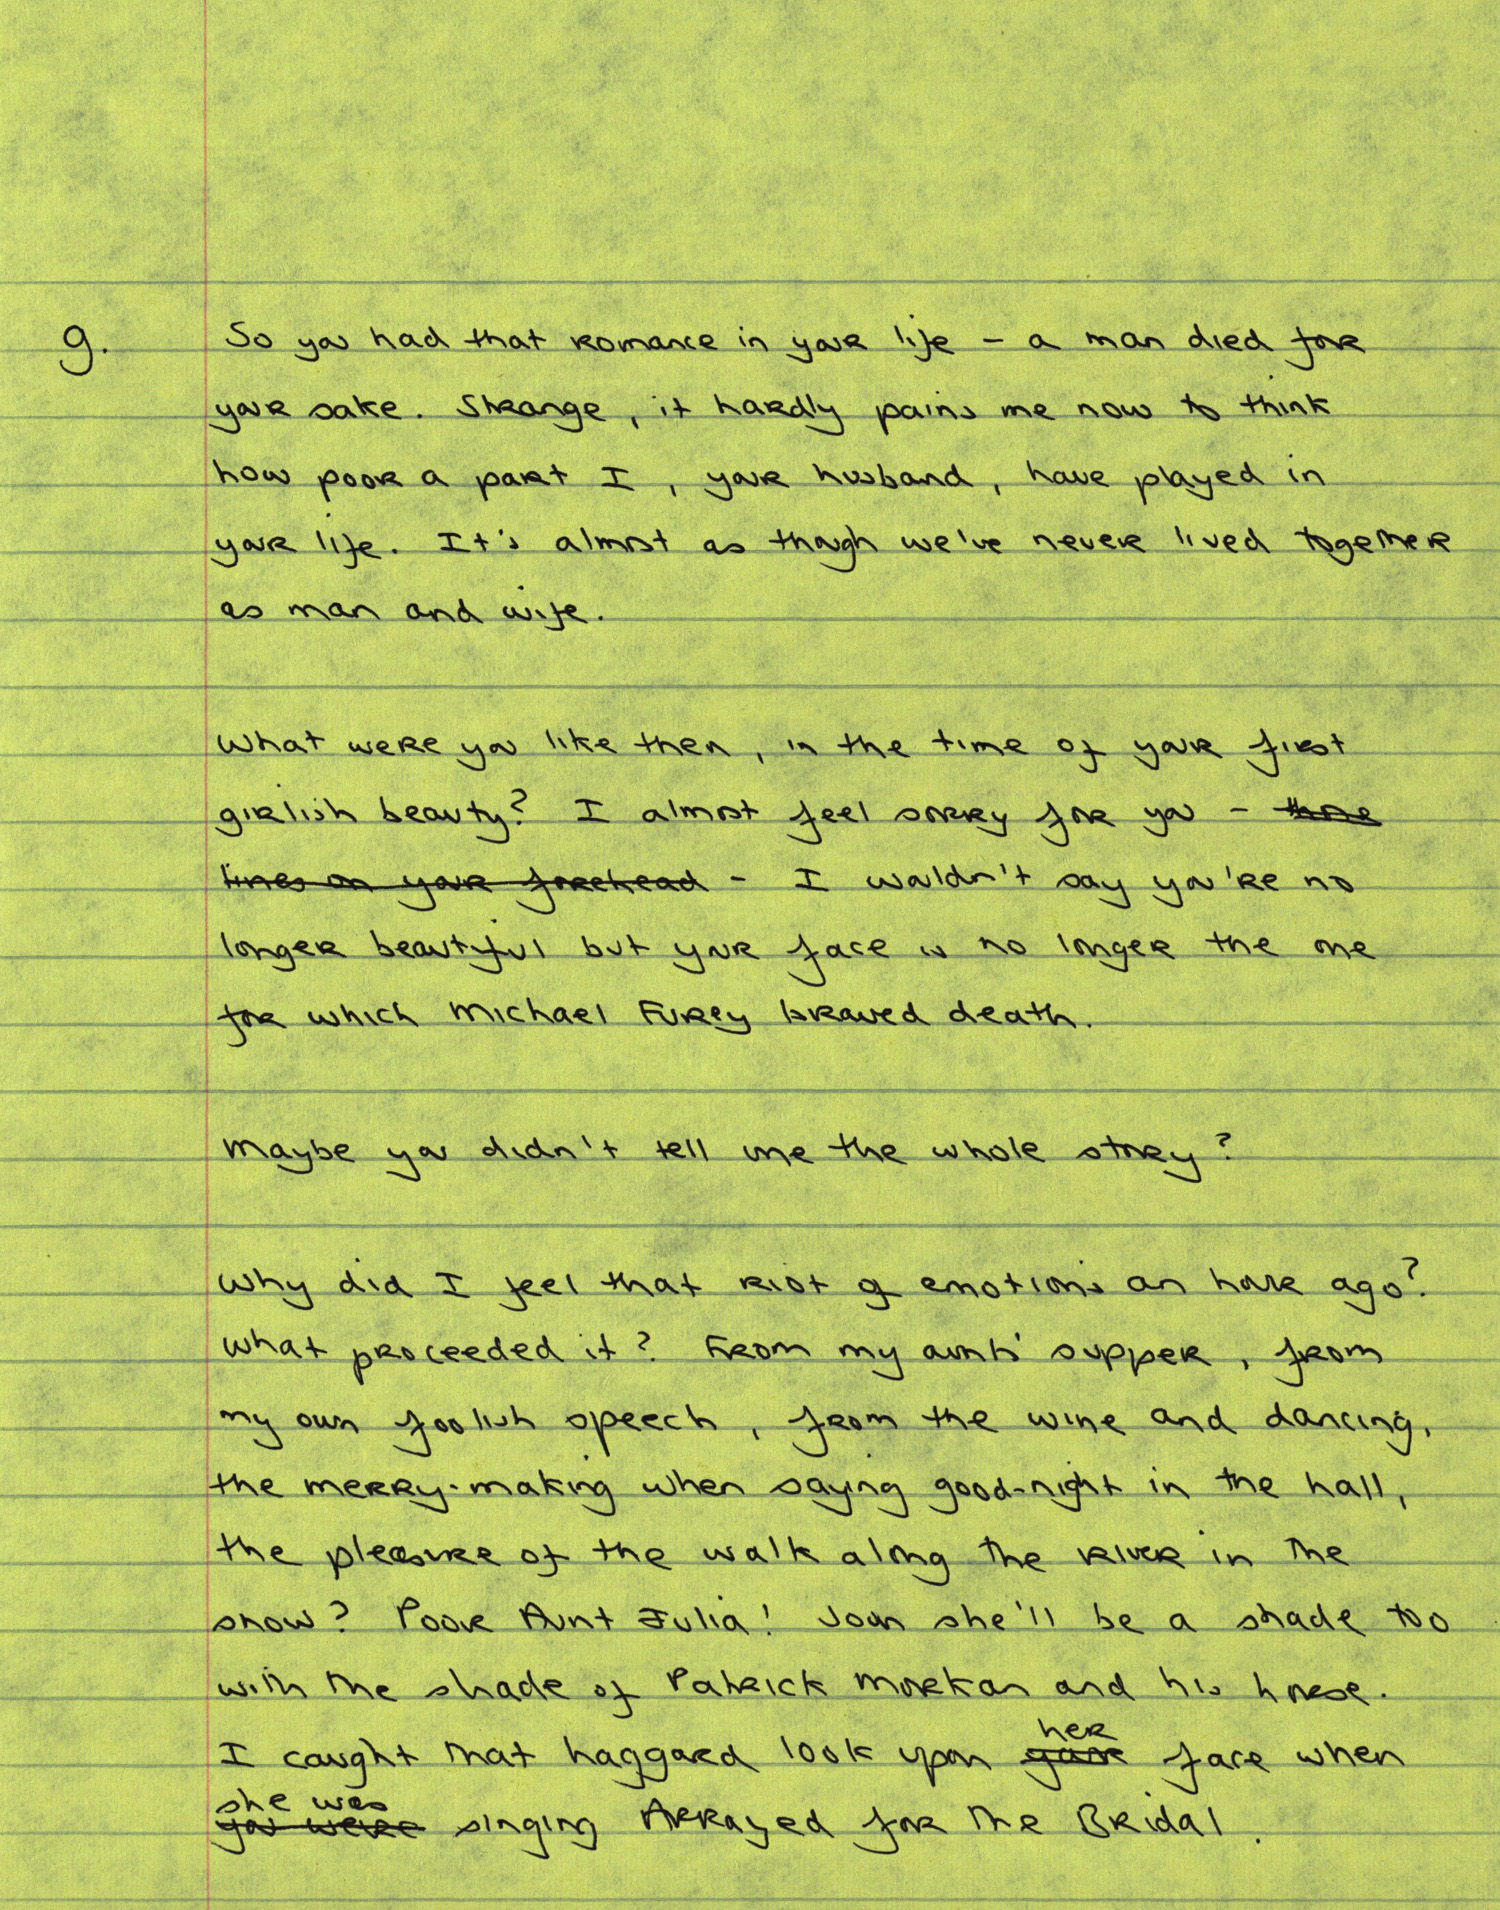 g. So you had that romance in your life – a man died for
your sake. Strange, it hardly pains me now to think
how poor a part I, your husband, have played in
your life. It's almost as though we've never lived together
as man and wife.
What were you like then, in the time of your first
girlish beauty? I almost feel sorry for you – those
lines on your forehead – I wouldn't say you're no
longer beautiful but your face is no longer the one
for which Michael Furey braved death.
Maybe you didn't tell me the whole story?
Why did I feel that riot of emotions an hour ago?
What proceeded it? From my aunts' supper, from
my own foolish speech, from the wine and dancing,
the merry-making when saying good-night in the hall,
the pleasure of the walk along the river in the
snow? Poor Aunt Julia! Soon she'll be a shade too
with the shade of Patrick Morkan and his horse.
her
I caught that haggard look upon your face when
she was
you were singing Arrayed for the Bridal.